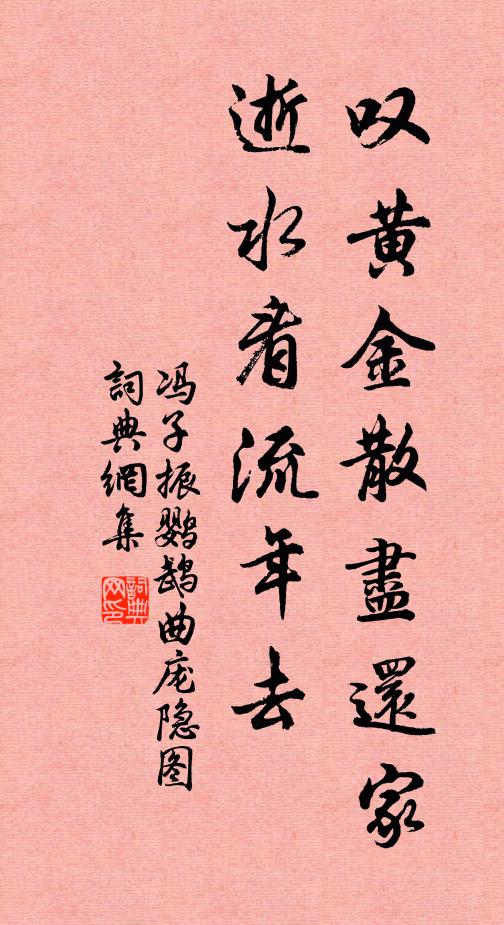 叹黄金散盡還家
逝水看流年去
冯子振鹦鹉曲庞隐图
詞典網集
詞典网印